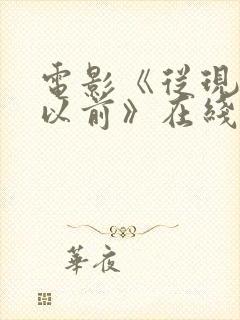 電影《從現
以前》在綫
華夜